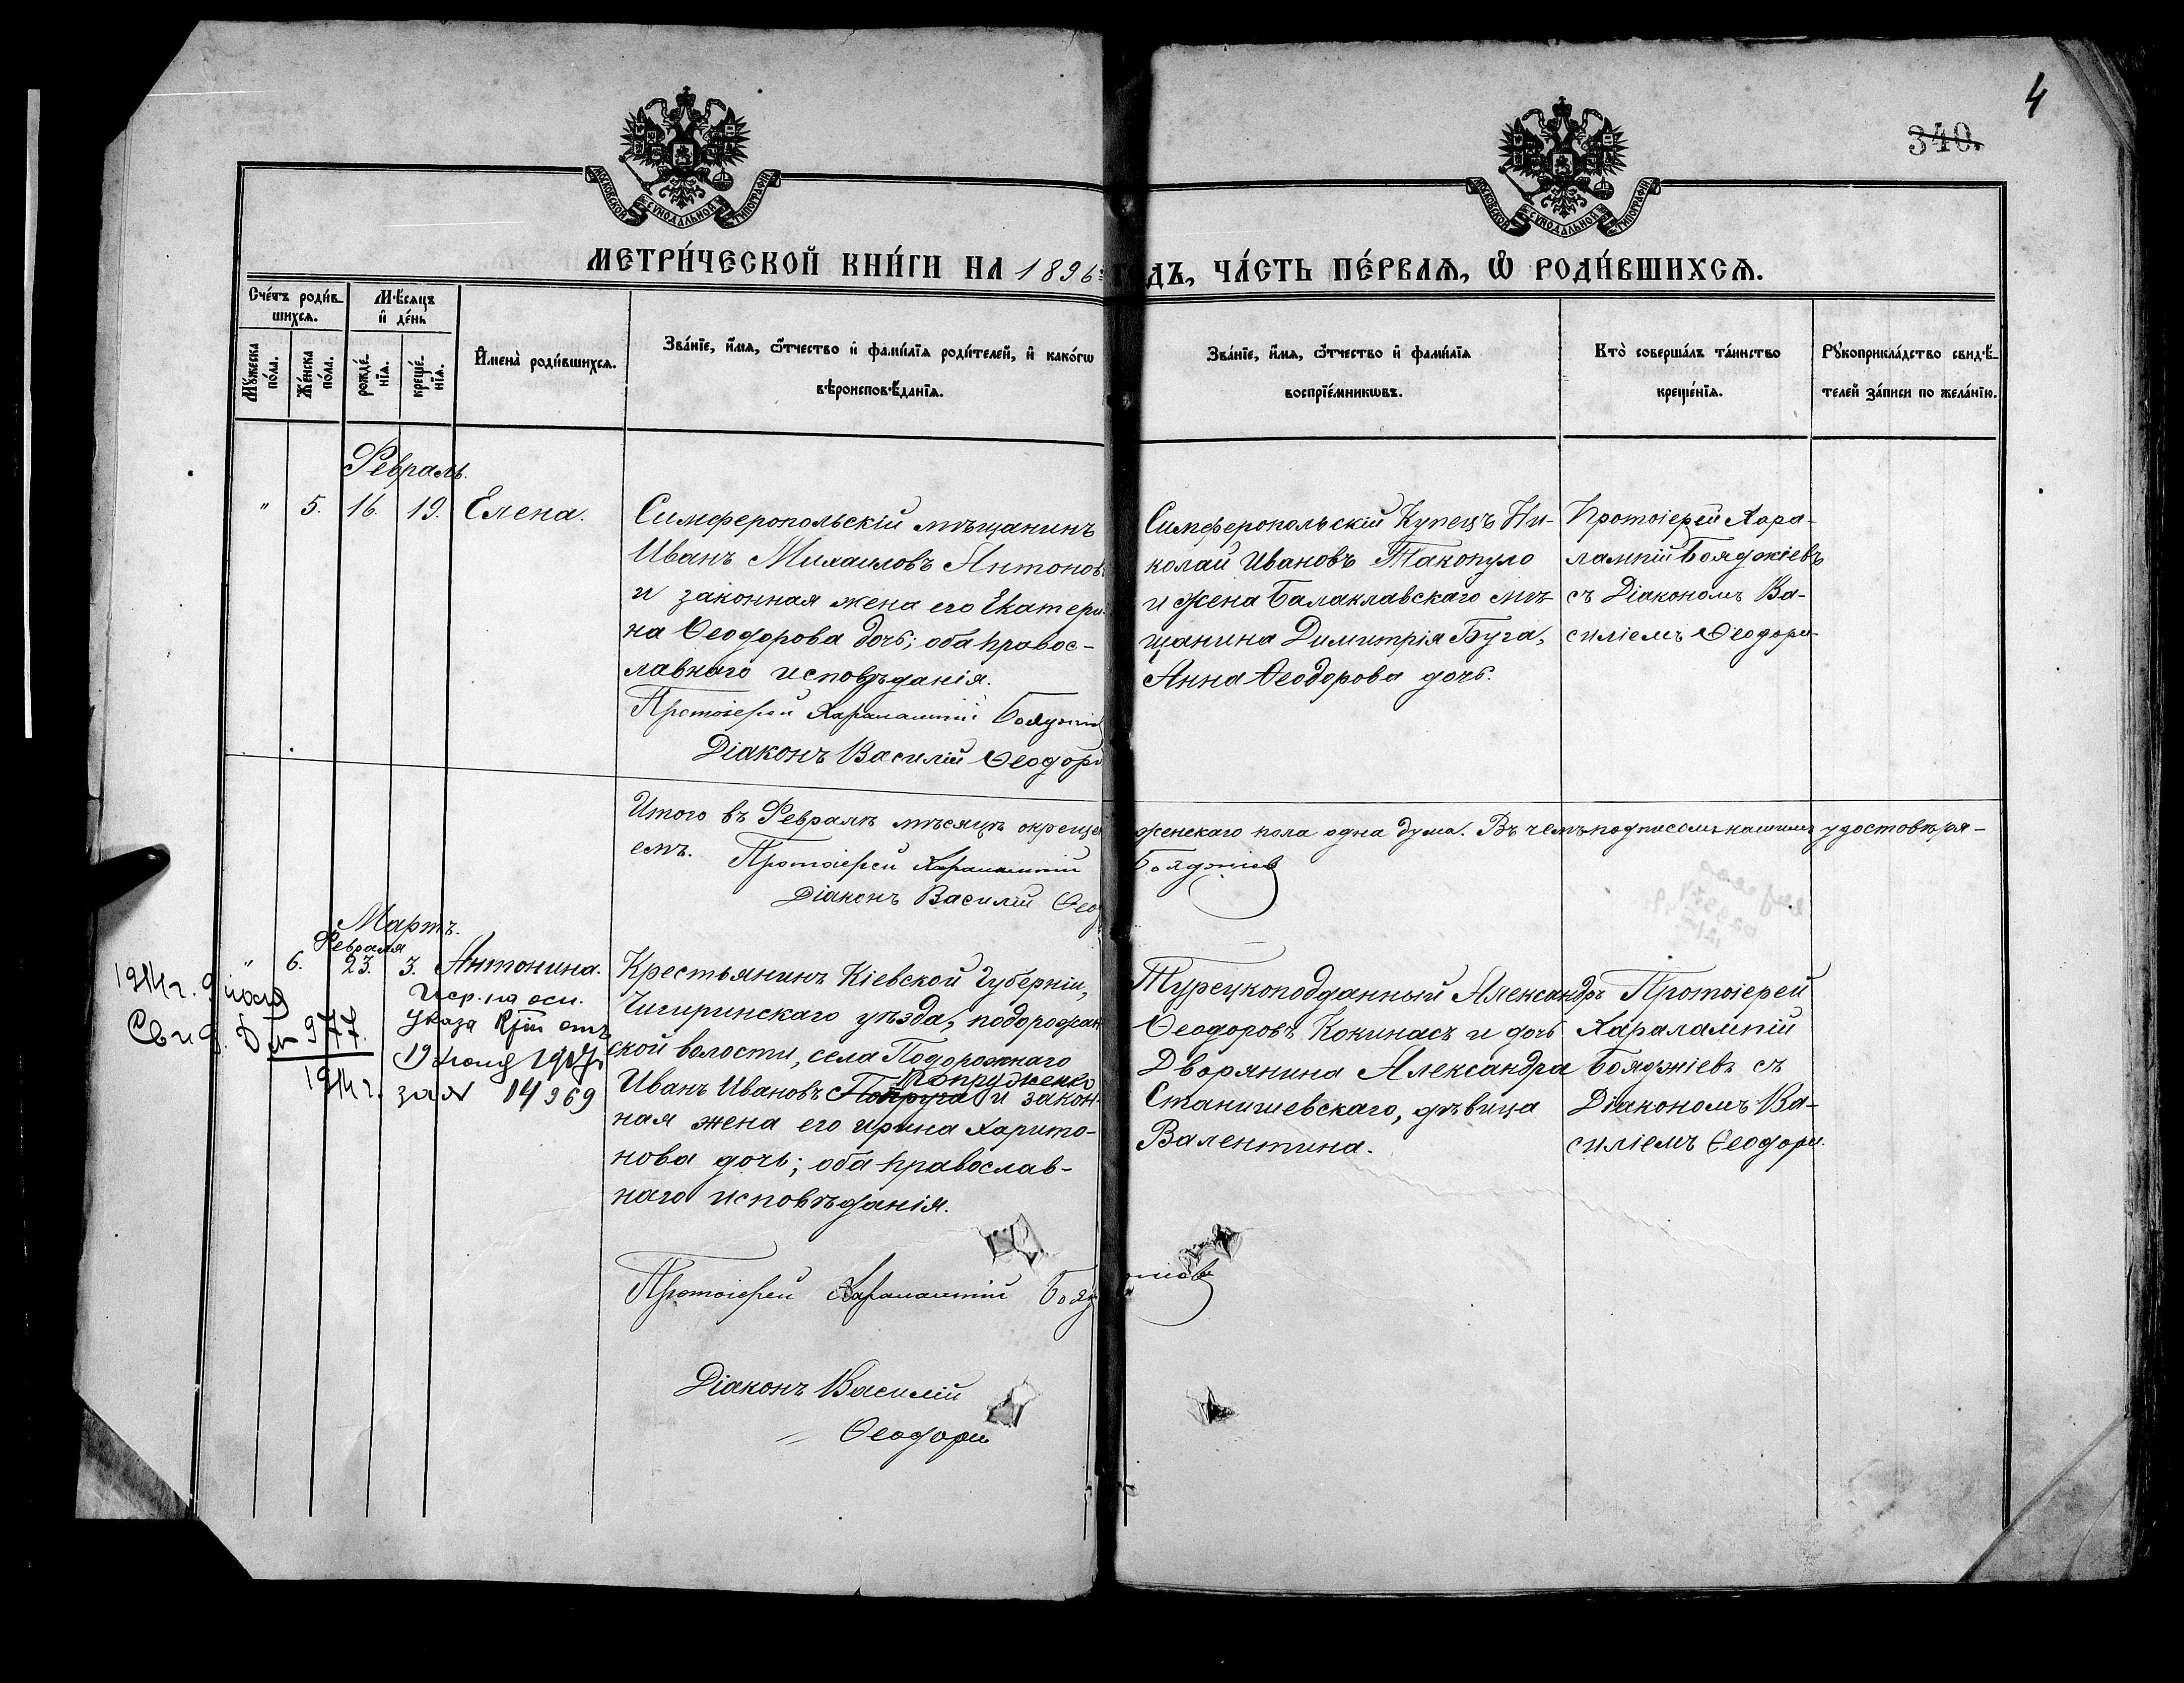 4
340.
МОСКОВСКОЙ СѴНОДАЛЬНОЙ ТИПОГРАФІИ
МОСКОВСКОЙ СѴНОДАЛЬНОЙ ТИПОГРАФІИ
МЕТРИ́ЧЕСКОЙ КНИ́ГИ НА 1896 г
ДЪ, ЧА́СТЬ ПЕ́РВАѦ, Ѡ РОДИ́ВШИХСѦ.
Сче́тъ роди́в-
шихсѧ.
Мѣ́сѧцъ
и҆ де́нь
Мꙋ́жеска
по́ла.
Же́нска
по́ла.
рожде́-
нїѧ.
креще́-
нїѧ.
И҆мена̀ роди́вшихсѧ.
Зва́нїе, и҆́мѧ, ѻ҆́тчество и҆ фами́лїѧ роди́телей, и҆ како́гѡ
вѣроисповѣ́данїѧ.
Зва́нїе, и҆́мѧ, ѻ҆́тчество и҆ фами́лїѧ
воспрїе́мникѡвъ.
Кто̀ соверша́лъ та́инство
креще́нїѧ.
Рꙋкоприкла́дство свидѣ́-
телей за́писи по жела́нїю.
Февраль.
" 5. 16. 19. Елена.
Симферопольскій мѣщанинъ
Иванъ Михаиловъ Антонов
и законная жена его Екатери-
на Ѳеодорова дочь; оба правос-
лавнаго исповѣданія.
Протоіерей Харалампій Бояджіе
Діаконъ Василій Ѳеодори
Симферопольскій Купецъ Ни-
колай Ивановъ Такопуло
и жена Балаклавскаго мѣ-
щанина Димитрія Буга,
Анна Ѳеодорова дочь.
Протоіерей Хара-
лампій Бояджіевъ
съ Діакономъ Ва-
силіемъ Ѳеодори-
Итого въ Февралѣ мѣсяцѣ окреще
женскаго пола одна душа. Въ чемъ подписомъ нашимъ удостовѣря-
емъ. Протоіерей Харалампій
Бояджіев
Діаконъ Василій Ѳеод
Мартъ.
Февраля
" 6. 23. 3. Антонина.
1914 г. 9 іюля
Свид. № 977.
1914 г.
Испр. на осн.
указа
19 іюля 1907
за № 14969
Крестьянинъ Кіевской Губерніи,
Чигиринскаго уѣзда, подорожан
ской волости, села Подорожнаго
Попруженко
Иванъ Ивановъ Попруга и закон-
ная жена его Ирина Харито-
нова дочь; оба православ-
наго исповѣданія.
Протоіерей Харалампій Бояд
жіев
Діаконъ Василій
Ѳеодори
Турецкоподданный Александръ
Ѳеодоровъ Кокинасъ и дочь
Дворянина Александра
Станишевскаго, дѣвица
Валентина.
Протоіерей
Харалампій
Бояджіевъ съ
Діакономъ Ва-
силіемъ Ѳеодори.